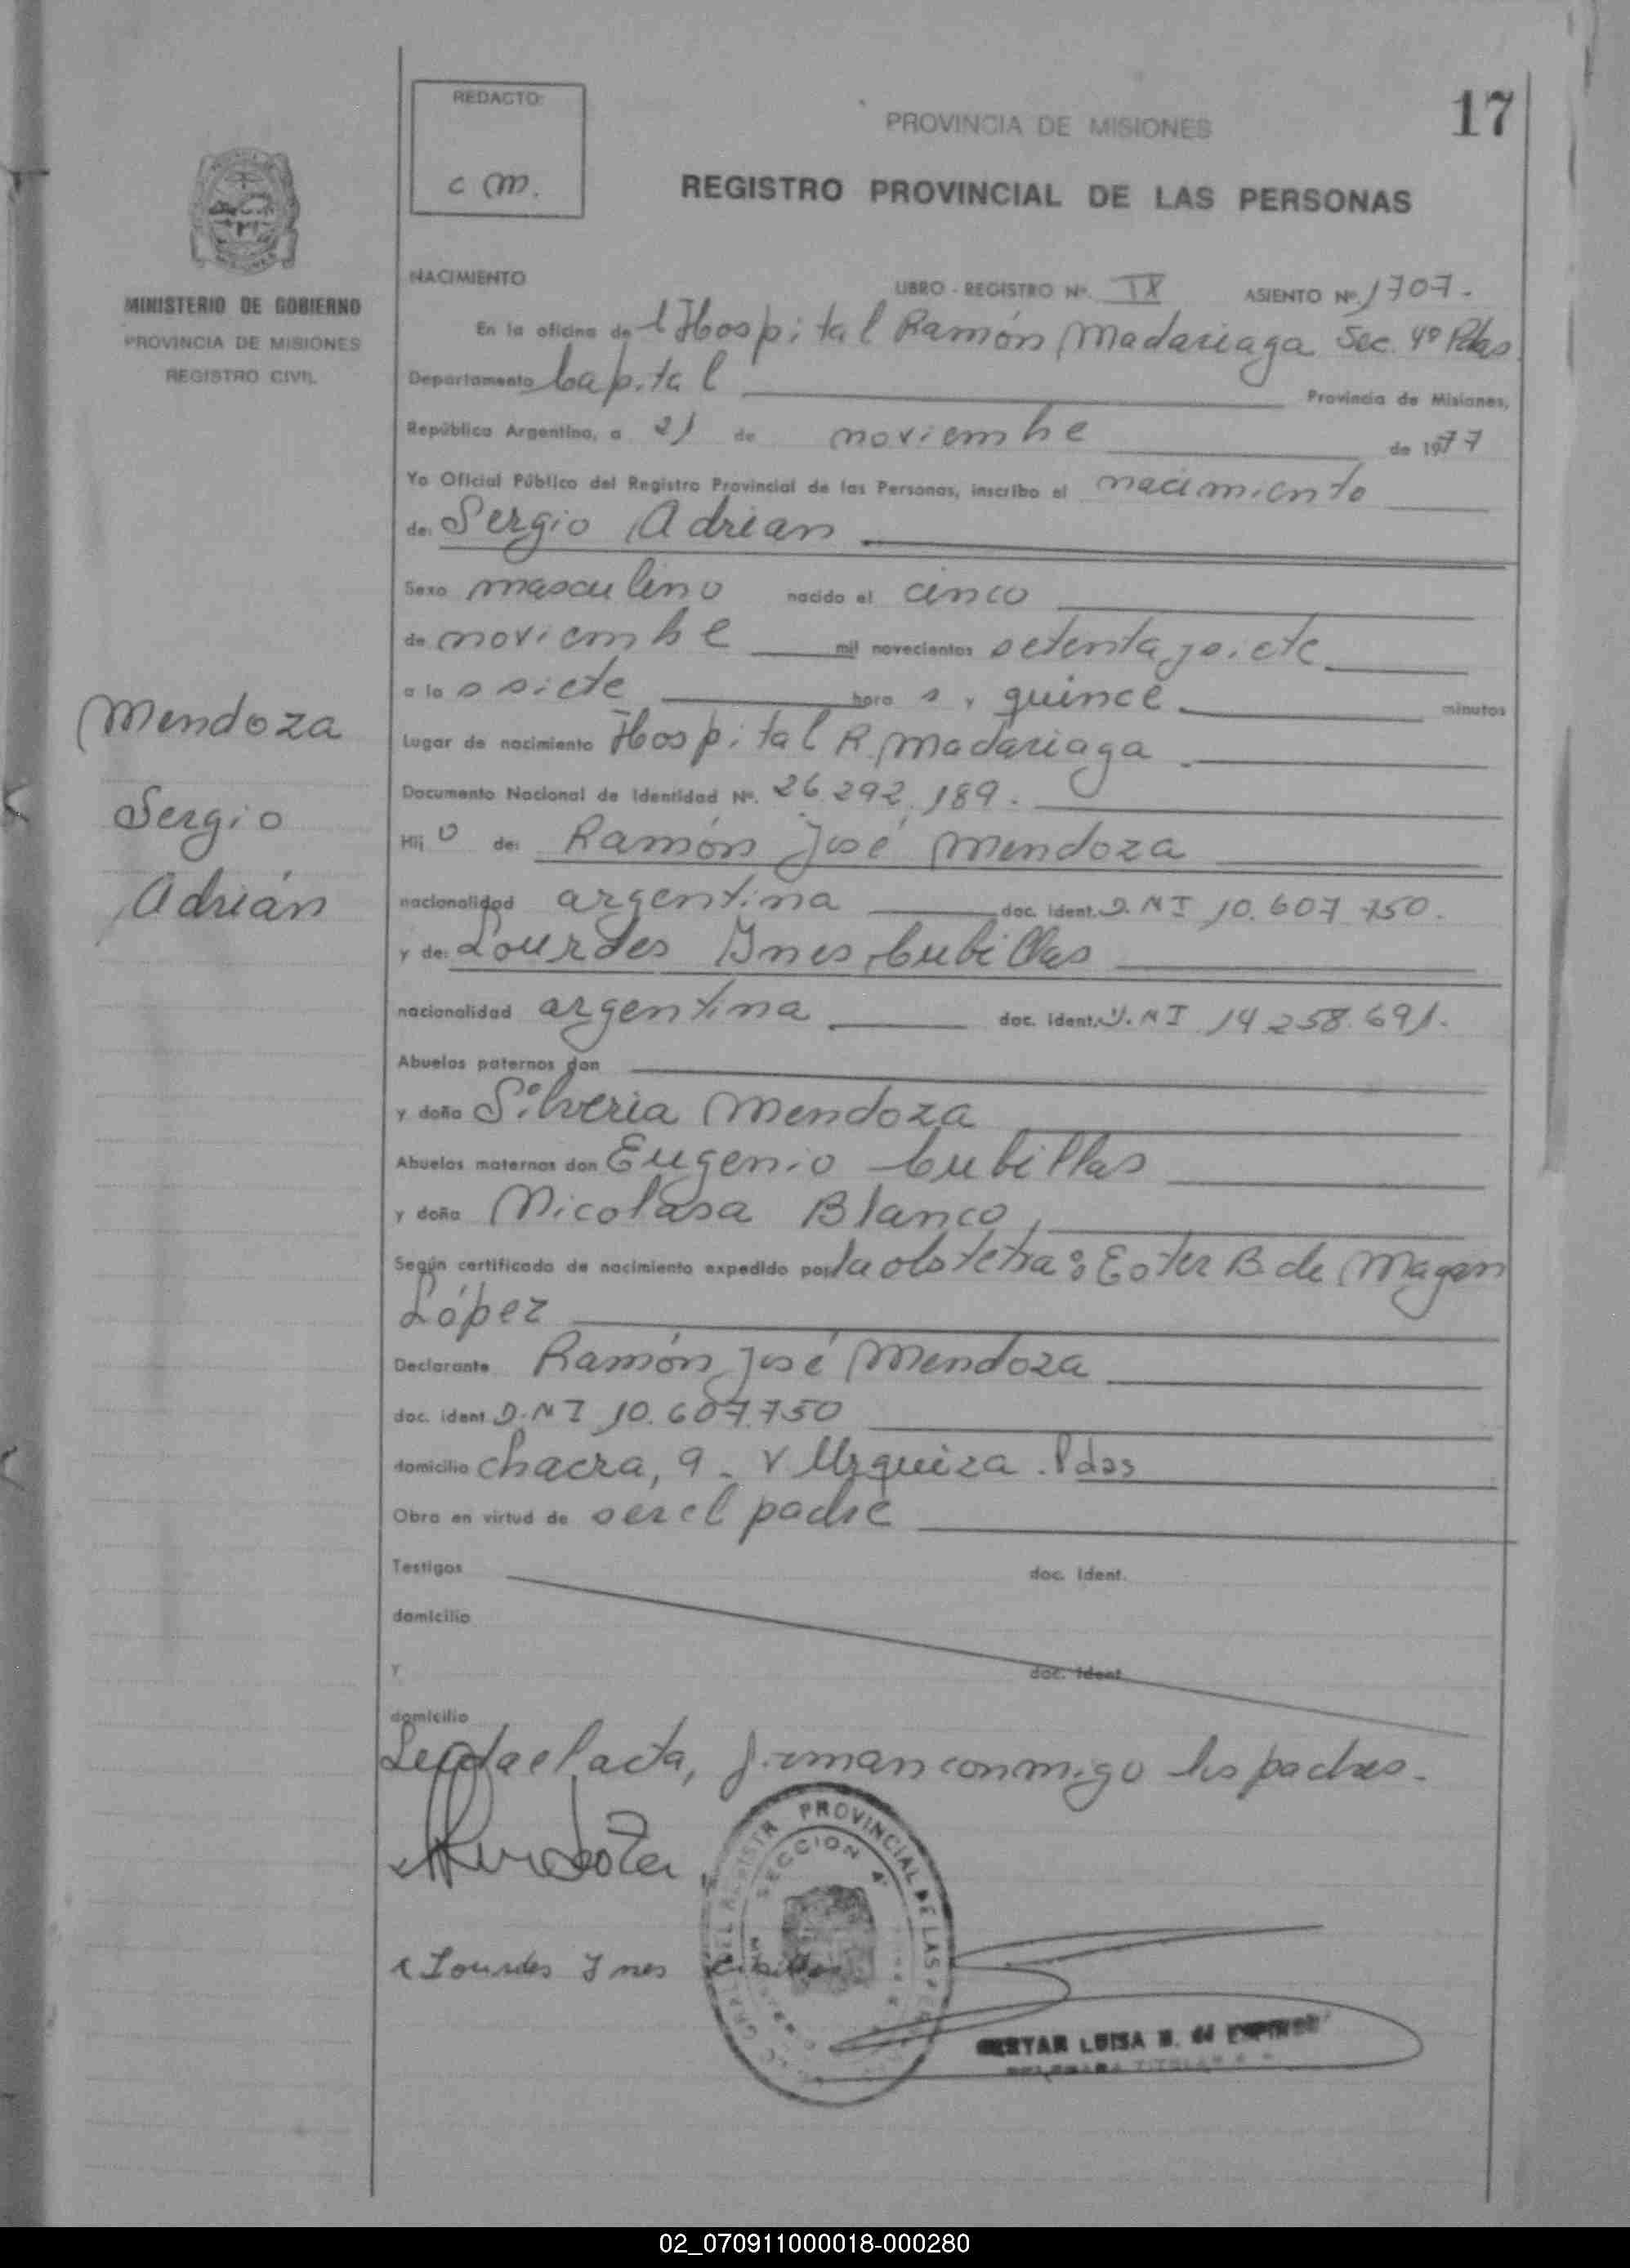 17
REDACTO:
c m.
PROVINCIA DE MISIONES
REGISTRO PROVINCIAL DE LAS PERSONAS
MINISTERIO DE GOBIERNO
PROVINCIA DE MISIONES
REGISTRO CIVIL
NACIMIENTO LIBRO - REGISTRO Nº. IX ASIENTO Nº. 1707.-
En la oficina de l Hospital Ramón Madariaga Sec. 4º Pdas
Departamento Capital Provincia de Misiones,
República Argentina, a 21 de noviembre de 1977
Yo Oficial Público del Registro Provincial de las Personas, inscribo el nacimiento
de: Sergio Adrian
Sexo masculino nacido el cinco
de noviembre mil novecientos setenta y siete
a la s siete hora s y quince minutos
Mendoza
Sergio
Adrián
Lugar de nacimiento Hospital R. Madariaga.
Documento Nacional de Identidad Nº. 26.292.189.
Hij o de: Ramón José Mendoza
nacionalidad argentina doc. ident. D.N I 10.607.750.
y de: Lourdes Ines Cubillas
nacionalidad argentina doc. ident. D.N I 14.258.691.
Abuelos paternos don
y doña Silveria Mendoza
Abuelos maternos don Eugenio Cubillas
y doña Nicolasa Blanco,
Según certificado de nacimiento expedido por la obstetra: Ester B. de Magan
López
Declarante Ramón José Mendoza
doc. ident. D.N I 10.607.750
domicilio chacra, 9 - V Urquiza. Pdas
Obra en virtud de ser el padre
Testigos doc. ident.
domicilio
Y doc. ident.
domicilio
Leida el acta, firman conmigo los padres.
Mendoza
Lourdes Ines Cubillas
PROVINCIAL DE LAS
SECCION 4ª
LUISA
02_070911000018-000280